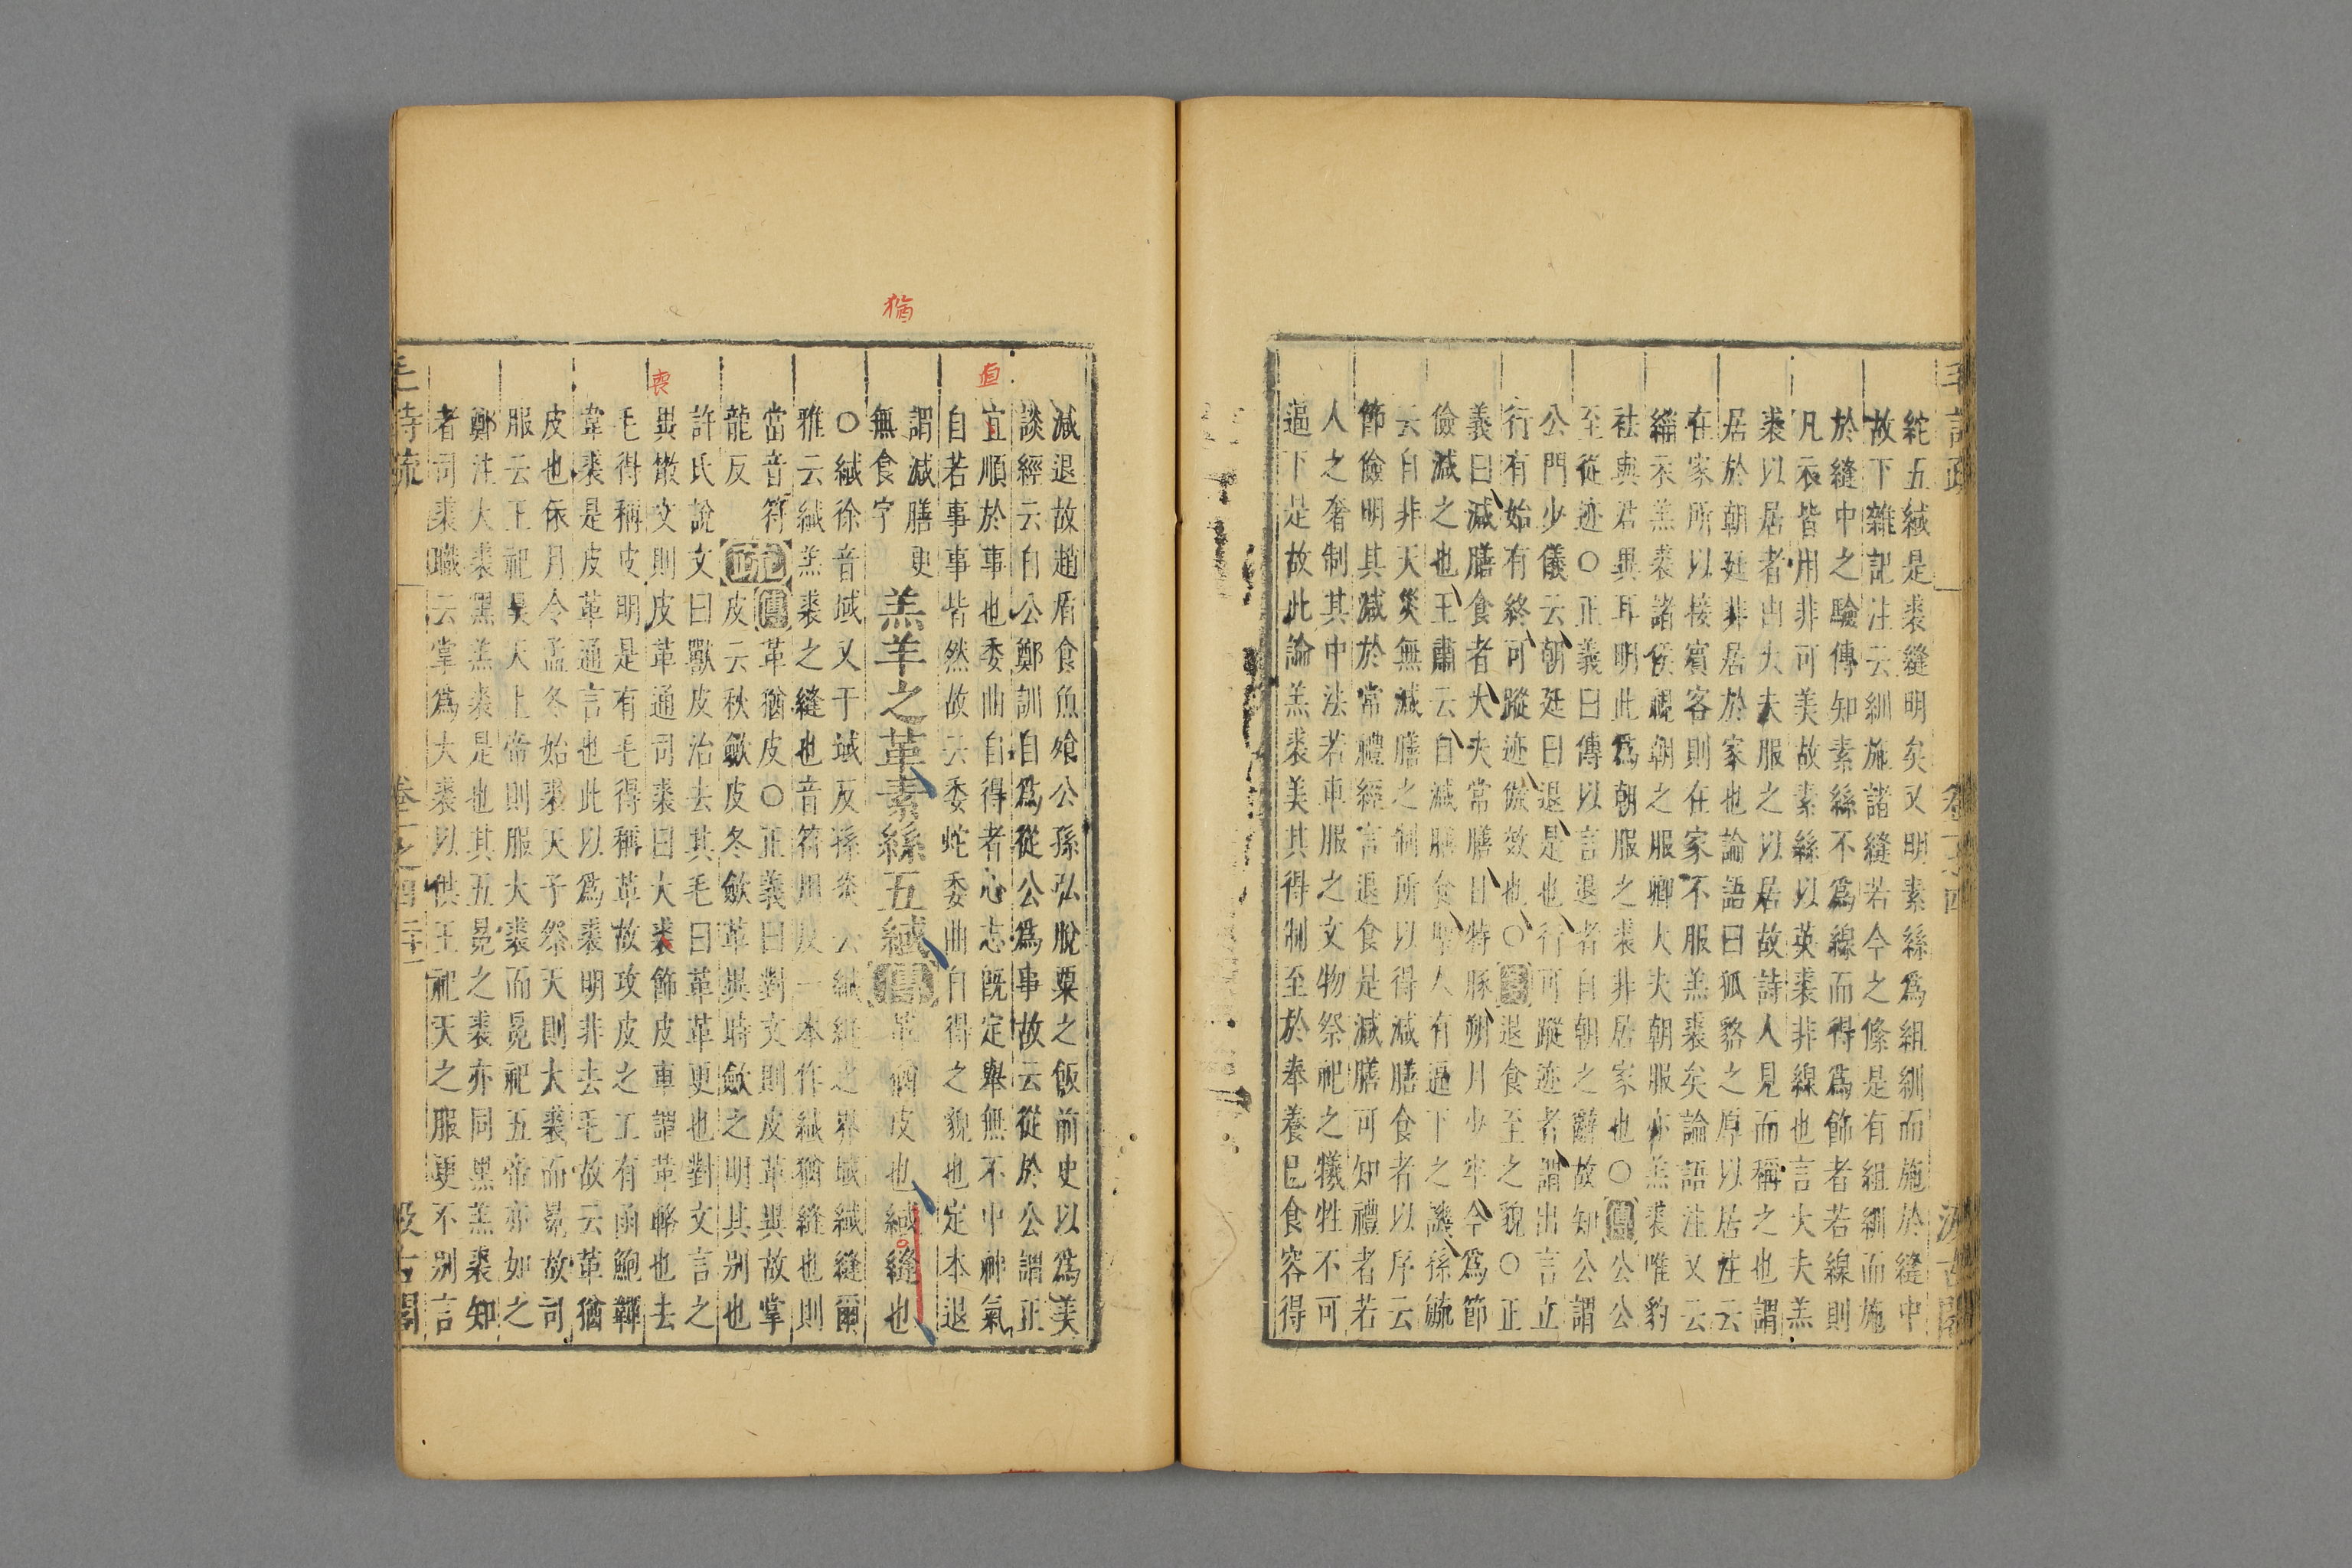 紽五緎是裘縫明矣又明素絲爲組紃而施於縫中
故下雜記注云紃施諸縫若今之絛是有組紃而施
於縫中之驗傳知素絲不爲線而得爲飾者若線則
凡衣皆用非可美故素絲以英裘非線也言大夫羔
裘以居者由大夫服之以居故詩人見而稱之也謂
居於朝廷非居於家也論語曰狐貉之厚以居注云
在家所以接賓客則在家不服羔裘矣論語注又云
緇衣羔裘諸侯視朝之服卿大夫朝服亦羔裘唯豹
袪與君異耳明此爲朝服之裘非居家也○傳公公
至從迹○正義曰傳以言退者自朝之辭故知公謂
公門少儀云朝廷曰退是也行可蹤迹者謂出言立
行有始有終可蹤迹倣效也○箋退食至之貌○正
義曰減膳食者大夫常膳日特豚朔月少牢今爲節
儉減之也王肅云自減膳食聖人有逼下之譏孫毓
云自非天災無減膳之制所以得減膳食者以序云
節儉明其減於常禮經言退食是減膳可知禮者若
人之奢制其中法若車服之文物祭祀之犧牲不可
逼下是故此論羔裘美其得制至於奉養已食容得
減退故趙盾食魚飧公孫弘脫粟之飯前史以爲美
談經云自公鄭訓自爲從公爲事故云從於公謂正
直
宜順於事也委曲自得者心志既定舉無不中神氣
自若事事皆然故云委蛇委曲自得之貌也定本退
謂減膳更
無食字
羔羊之革素絲五緎傳革猶皮也緎縫也
猶
○緎徐音域又于域反孫炎云緎縫之界域緎縫爾
雅云緎羔裘之縫也音符用反一本作緎猶縫也則
當音符
龍反
傳革猶皮○正義曰對文則皮革異故掌
疏皮云秋斂皮冬斂革異時斂之明其別也
許氏說文曰獸皮治去其毛曰革革更也對文言之
異散文則皮革通司裘曰大裘飾皮車謂革輅也去
喪
毛得稱皮明是有毛得稱革故攻皮之工有函鮑韗
韋裘是皮革通言也此以爲裘明非去毛故云革猶
皮也依月令孟冬始裘天子祭天則大裘而冕故司
服云王祀昊天上帝則服大裘而冕祀五帝亦如之
鄭注大裘黑羔裘是也其五冕之裘亦同黑羔裘知
者司裘職云掌爲大裘以供王祀天之服更不別言
毛詩疏 卷一之四 汲古閣